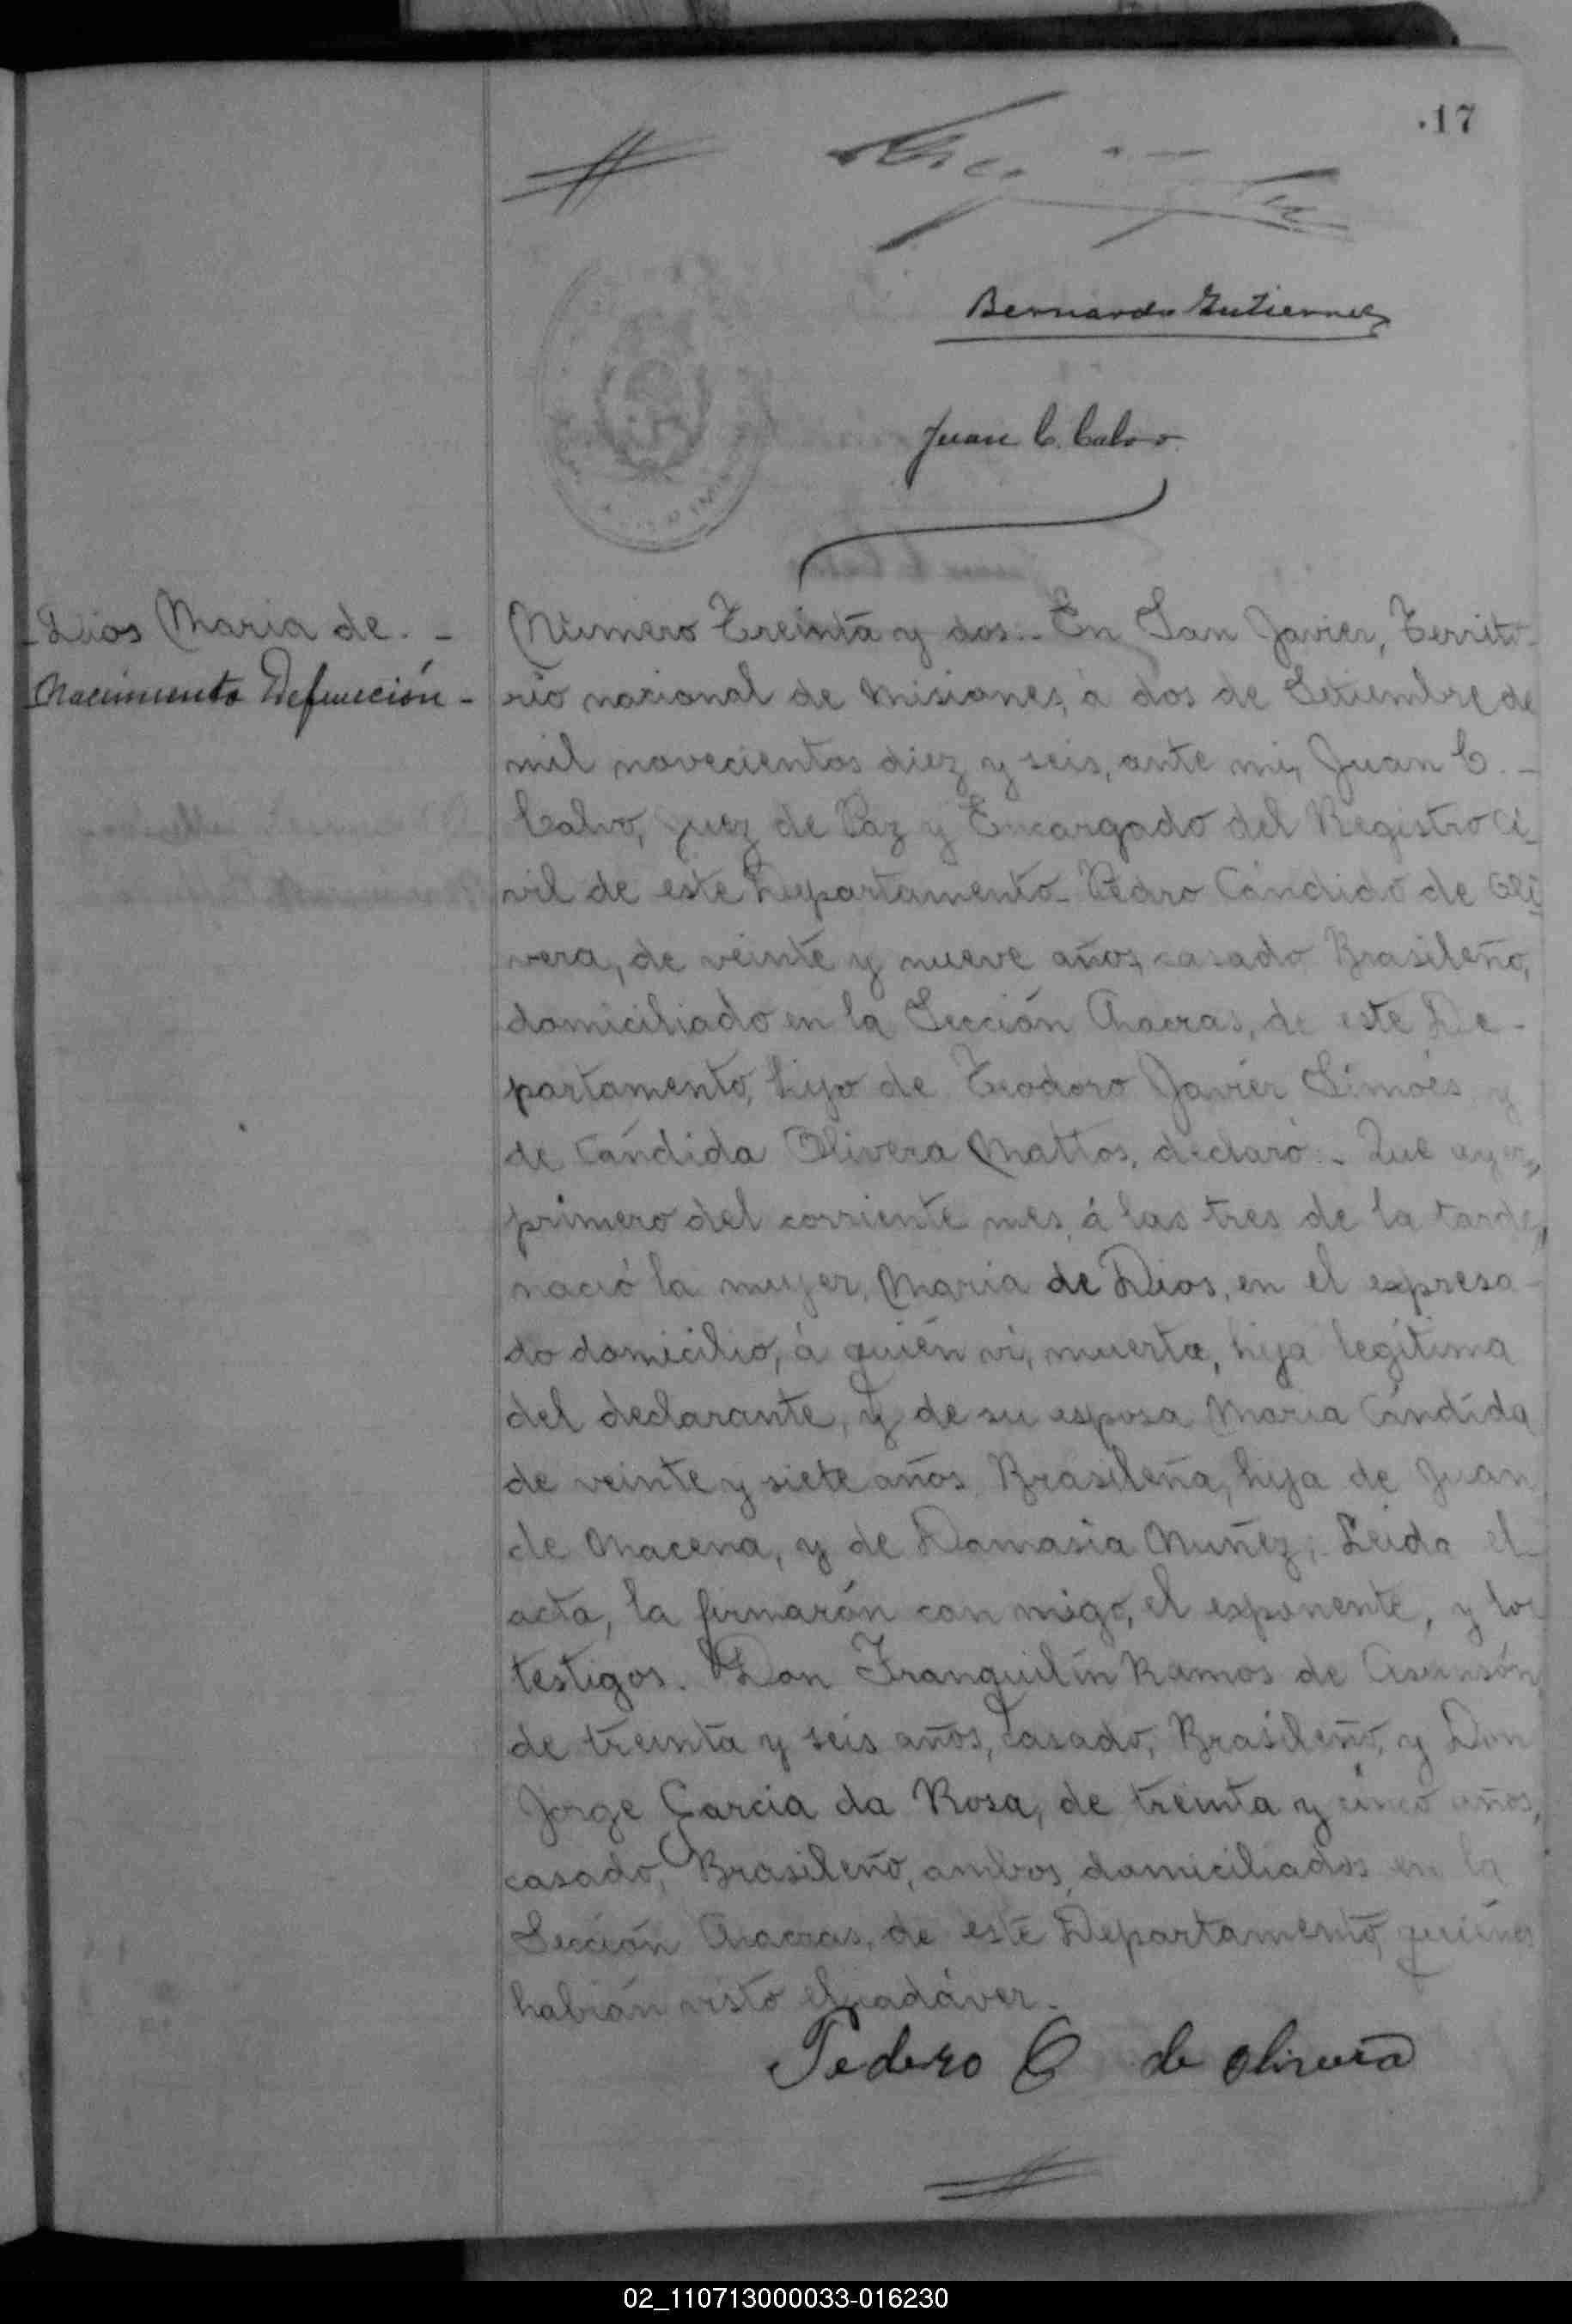 17
Bernardo Gutierrez
Juan C. Calvo
-Dios Maria de. -
Nacimiento Defunción -
Número Treinta y dos.- En San Javier, Territo-
rio nacional de Misiones, á dos de Setiembre de
mil novecientos diez y seis, ante mi, Juan C. -
Calvo, Juez de Paz y Encargado del Registro Ci-
vil de este Departamento- Pedro Cándido de Oli-
vera, de veinte y nueve años, casado Brasileño,
domiciliado en la Sección Chacras, de este De-
partamento, hijo de Teodoro Javier Simóes y
de Cándida Olivera Mattos, declaró:- Que ayer,
primero del corriente mes, á las tres de la tarde,
nació la mujer, Maria de Dios, en el expresa-
do domicilio, á quién vi, muerta, hija legítima
del declarante, y de su esposa Maria Cándida
de veinte y siete años Brasileña, hija de Juan
de Macena, y de Damasia Nuñez;- Leida el
acta, la firmarón con migo, el exponente, y los
testigos. Don Franquilín Ramos de Asunsón
de treinta y seis años, casado, Brasileño, y Don
Jorge Garcia da Rosa, de treinta y cinco años,
casado, Brasileño, ambos, domiciliados en la
Sección Chacras, de este Departamento, quiénes
habián visto el cadáver.-
Pedero C de olivera
02_110713000033-016230